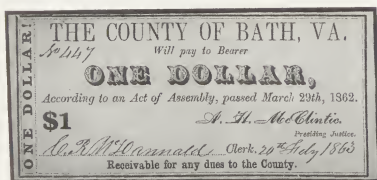 ONE DOLLAR!
THE COUNTY OF BATH, VA.
No 447 Will pay to Bearer
ONE DOLLAR,
According to an Act of Assembly, passed March 29th, 1862.
$1 A. H. McClintic.
Presiding Justice.
Clerk. 20th Feby 1863
Receivable for any dues to the County.